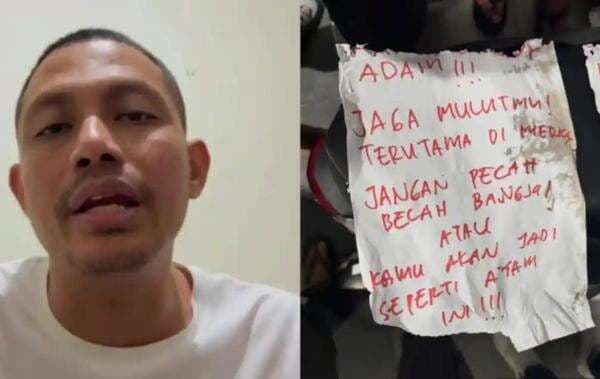 ADAM !!!
JAGA MULUTMU!
TERUTAMA DI MEDIA
JANGAN PECAH
BECAH BANGSA!
ATAU
KAMU AKAN JADI
SEPERTI AYAM
INI !!!